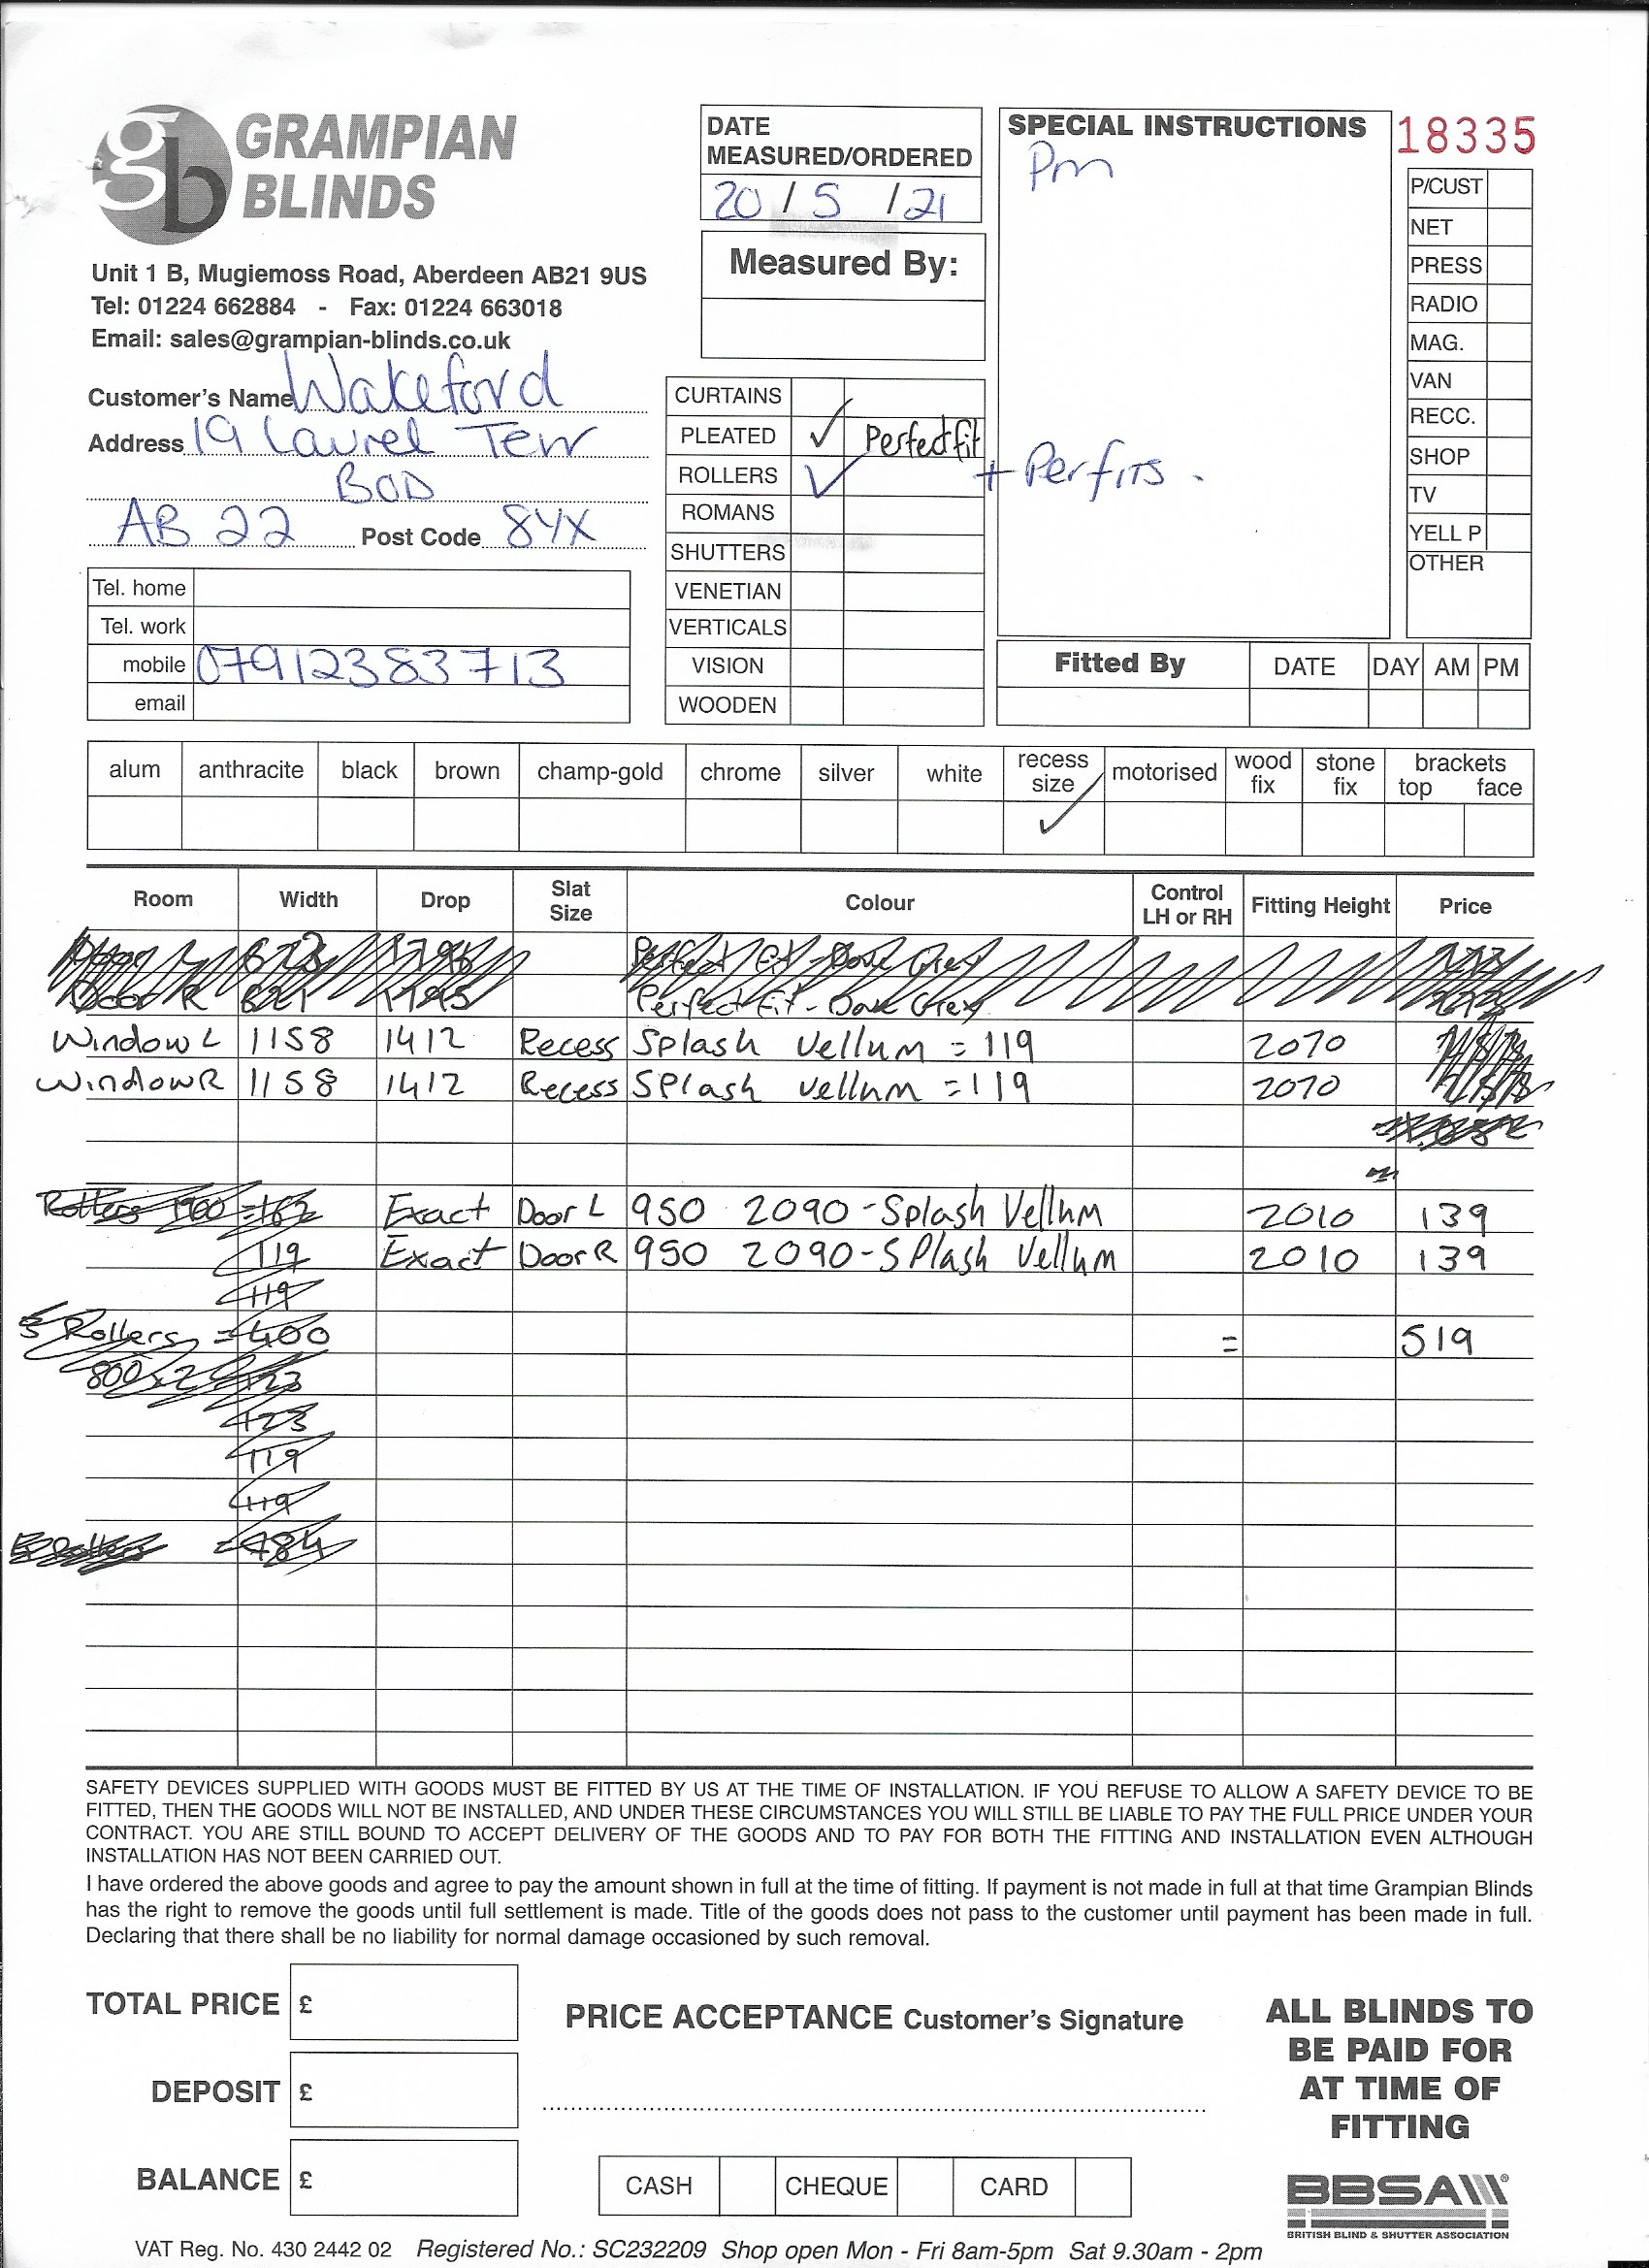 gb GRAMPIAN BLINDS
Unit 1 B, Mugiemoss Road, Aberdeen AB21 9US
Tel: 01224 662884 - Fax: 01224 663018
Email: sales@grampian-blinds.co.uk
Customer's Name Wakeford
Address 19 Laurel Terr
BOD
AB 22 Post Code 8YX
Tel. home
Tel. work
mobile 07912383713
email
DATE MEASURED/ORDERED
20 / 5 / 21
Measured By:
CURTAINS
PLEATED ✓ Perfect fit
ROLLERS ✓ + Perfits.
ROMANS
SHUTTERS
VENETIAN
VERTICALS
VISION
WOODEN
SPECIAL INSTRUCTIONS
Pm
18335
P/CUST
NET
PRESS
RADIO
MAG.
VAN
RECC.
SHOP
TV
YELL P
OTHER
Fitted By DATE DAY AM PM
alum anthracite black brown champ-gold chrome silver white recess size ✓ motorised wood fix stone fix brackets top face
Room Width Drop Slat Size Colour Control LH or RH Fitting Height Price
Perfect Fit - Dove Grey
Door R 1795 Perfect Fit - Dove Grey
Window L 1158 1412 Recess Splash Vellum = 119 2070
Window R 1158 1412 Recess Splash Vellum = 119 2070
Rollers Exact Door L 950 2090 - Splash Vellum 2010 139
119 Exact Door R 950 2090 - Splash Vellum 2010 139
119
Rollers = 400 = 519
800 x 2
123
119
119
Rollers = 484
SAFETY DEVICES SUPPLIED WITH GOODS MUST BE FITTED BY US AT THE TIME OF INSTALLATION. IF YOU REFUSE TO ALLOW A SAFETY DEVICE TO BE
FITTED, THEN THE GOODS WILL NOT BE INSTALLED, AND UNDER THESE CIRCUMSTANCES YOU WILL STILL BE LIABLE TO PAY THE FULL PRICE UNDER YOUR
CONTRACT. YOU ARE STILL BOUND TO ACCEPT DELIVERY OF THE GOODS AND TO PAY FOR BOTH THE FITTING AND INSTALLATION EVEN ALTHOUGH
INSTALLATION HAS NOT BEEN CARRIED OUT.
I have ordered the above goods and agree to pay the amount shown in full at the time of fitting. If payment is not made in full at that time Grampian Blinds
has the right to remove the goods until full settlement is made. Title of the goods does not pass to the customer until payment has been made in full.
Declaring that there shall be no liability for normal damage occasioned by such removal.
TOTAL PRICE £
DEPOSIT £
BALANCE £
PRICE ACCEPTANCE Customer's Signature
CASH CHEQUE CARD
ALL BLINDS TO
BE PAID FOR
AT TIME OF
FITTING
BBSA ®
BRITISH BLIND & SHUTTER ASSOCIATION
VAT Reg. No. 430 2442 02 Registered No.: SC232209 Shop open Mon - Fri 8am-5pm Sat 9.30am - 2pm